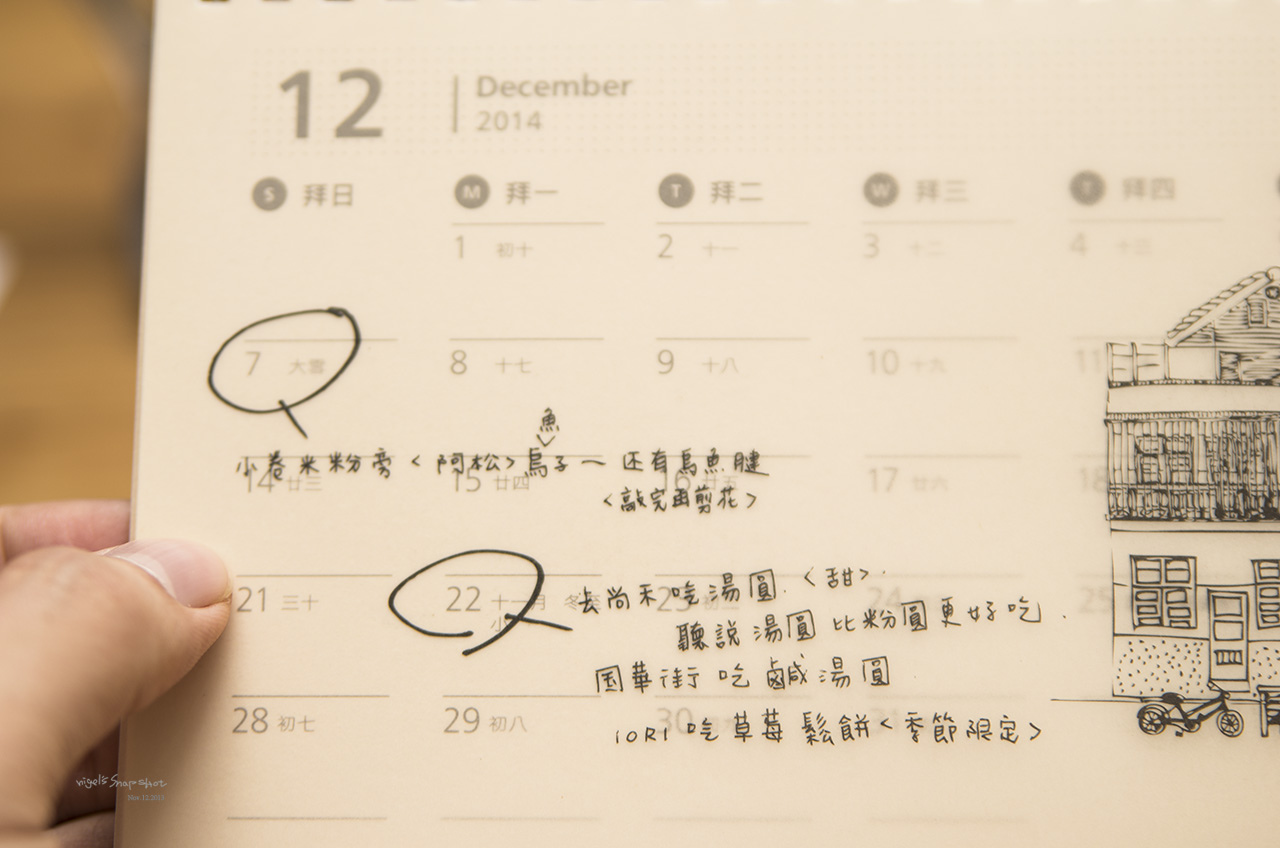 12 December
2014
S 拜日 M 拜一 T 拜二 W 拜三 T 拜四
1 初十 2 十一 3 十二 4 十三
7 大雪 8 十七 9 十八 10 十九 11
魚
小卷米粉旁<阿松>烏子～还有烏魚腱
14 廿三 15 廿四 16 廿五 17 廿六 18
<敲完再剪花>
去尚禾吃湯圓.<甜>.
21 三十 22 十一月 冬至 23 初二 24 25
小
聽說湯圓比粉圓更好吃.
国華街吃鹵咸湯圓
28 初七 29 初八 30 31
iORi 吃草莓鬆餅<季節限定>
nigel's Snapshot